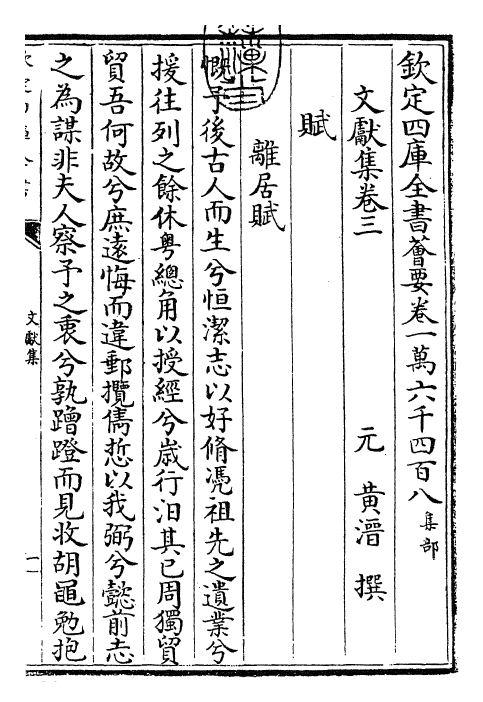 欽定四庫全書薈要卷一萬六千四百八集部
文獻集卷三
元 黃溍 撰
賦
離居賦
慨予後古人而生兮恒潔志以好脩憑祖先之遺業兮
援往列之餘休粵總角以授經兮嵗行汨其已周獨貿
貿吾何故兮庶遠悔而違郵攬儁悊以我弼兮懿前志
之為謀非夫人察予之衷兮孰蹭蹬而見收胡黽勉抱
文獻集
一